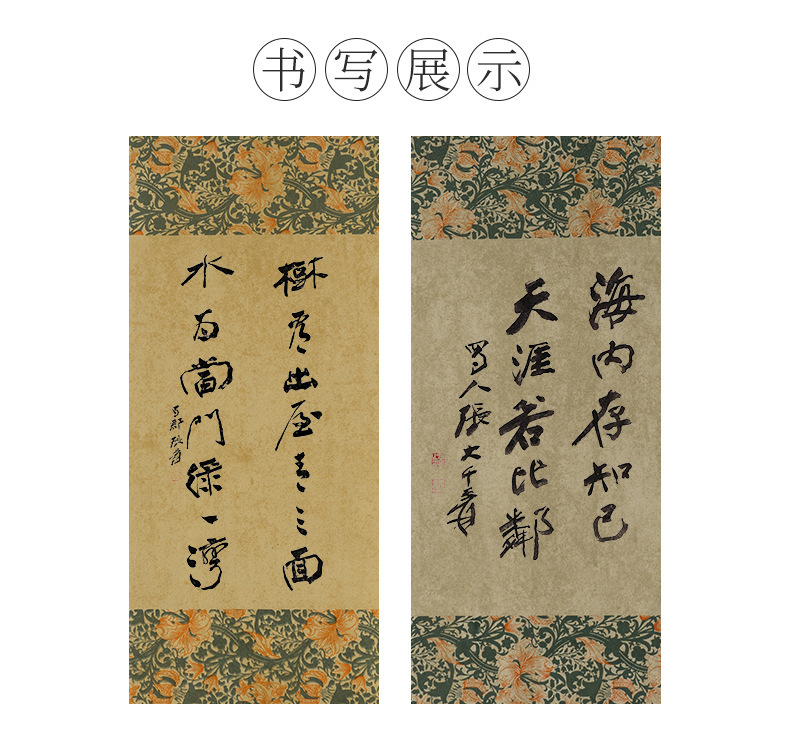 书写展示
樹出屋青三面
水當門綠一灣
蜀郡張爰
海内存知己
天涯若比鄰
蜀人張大千爰